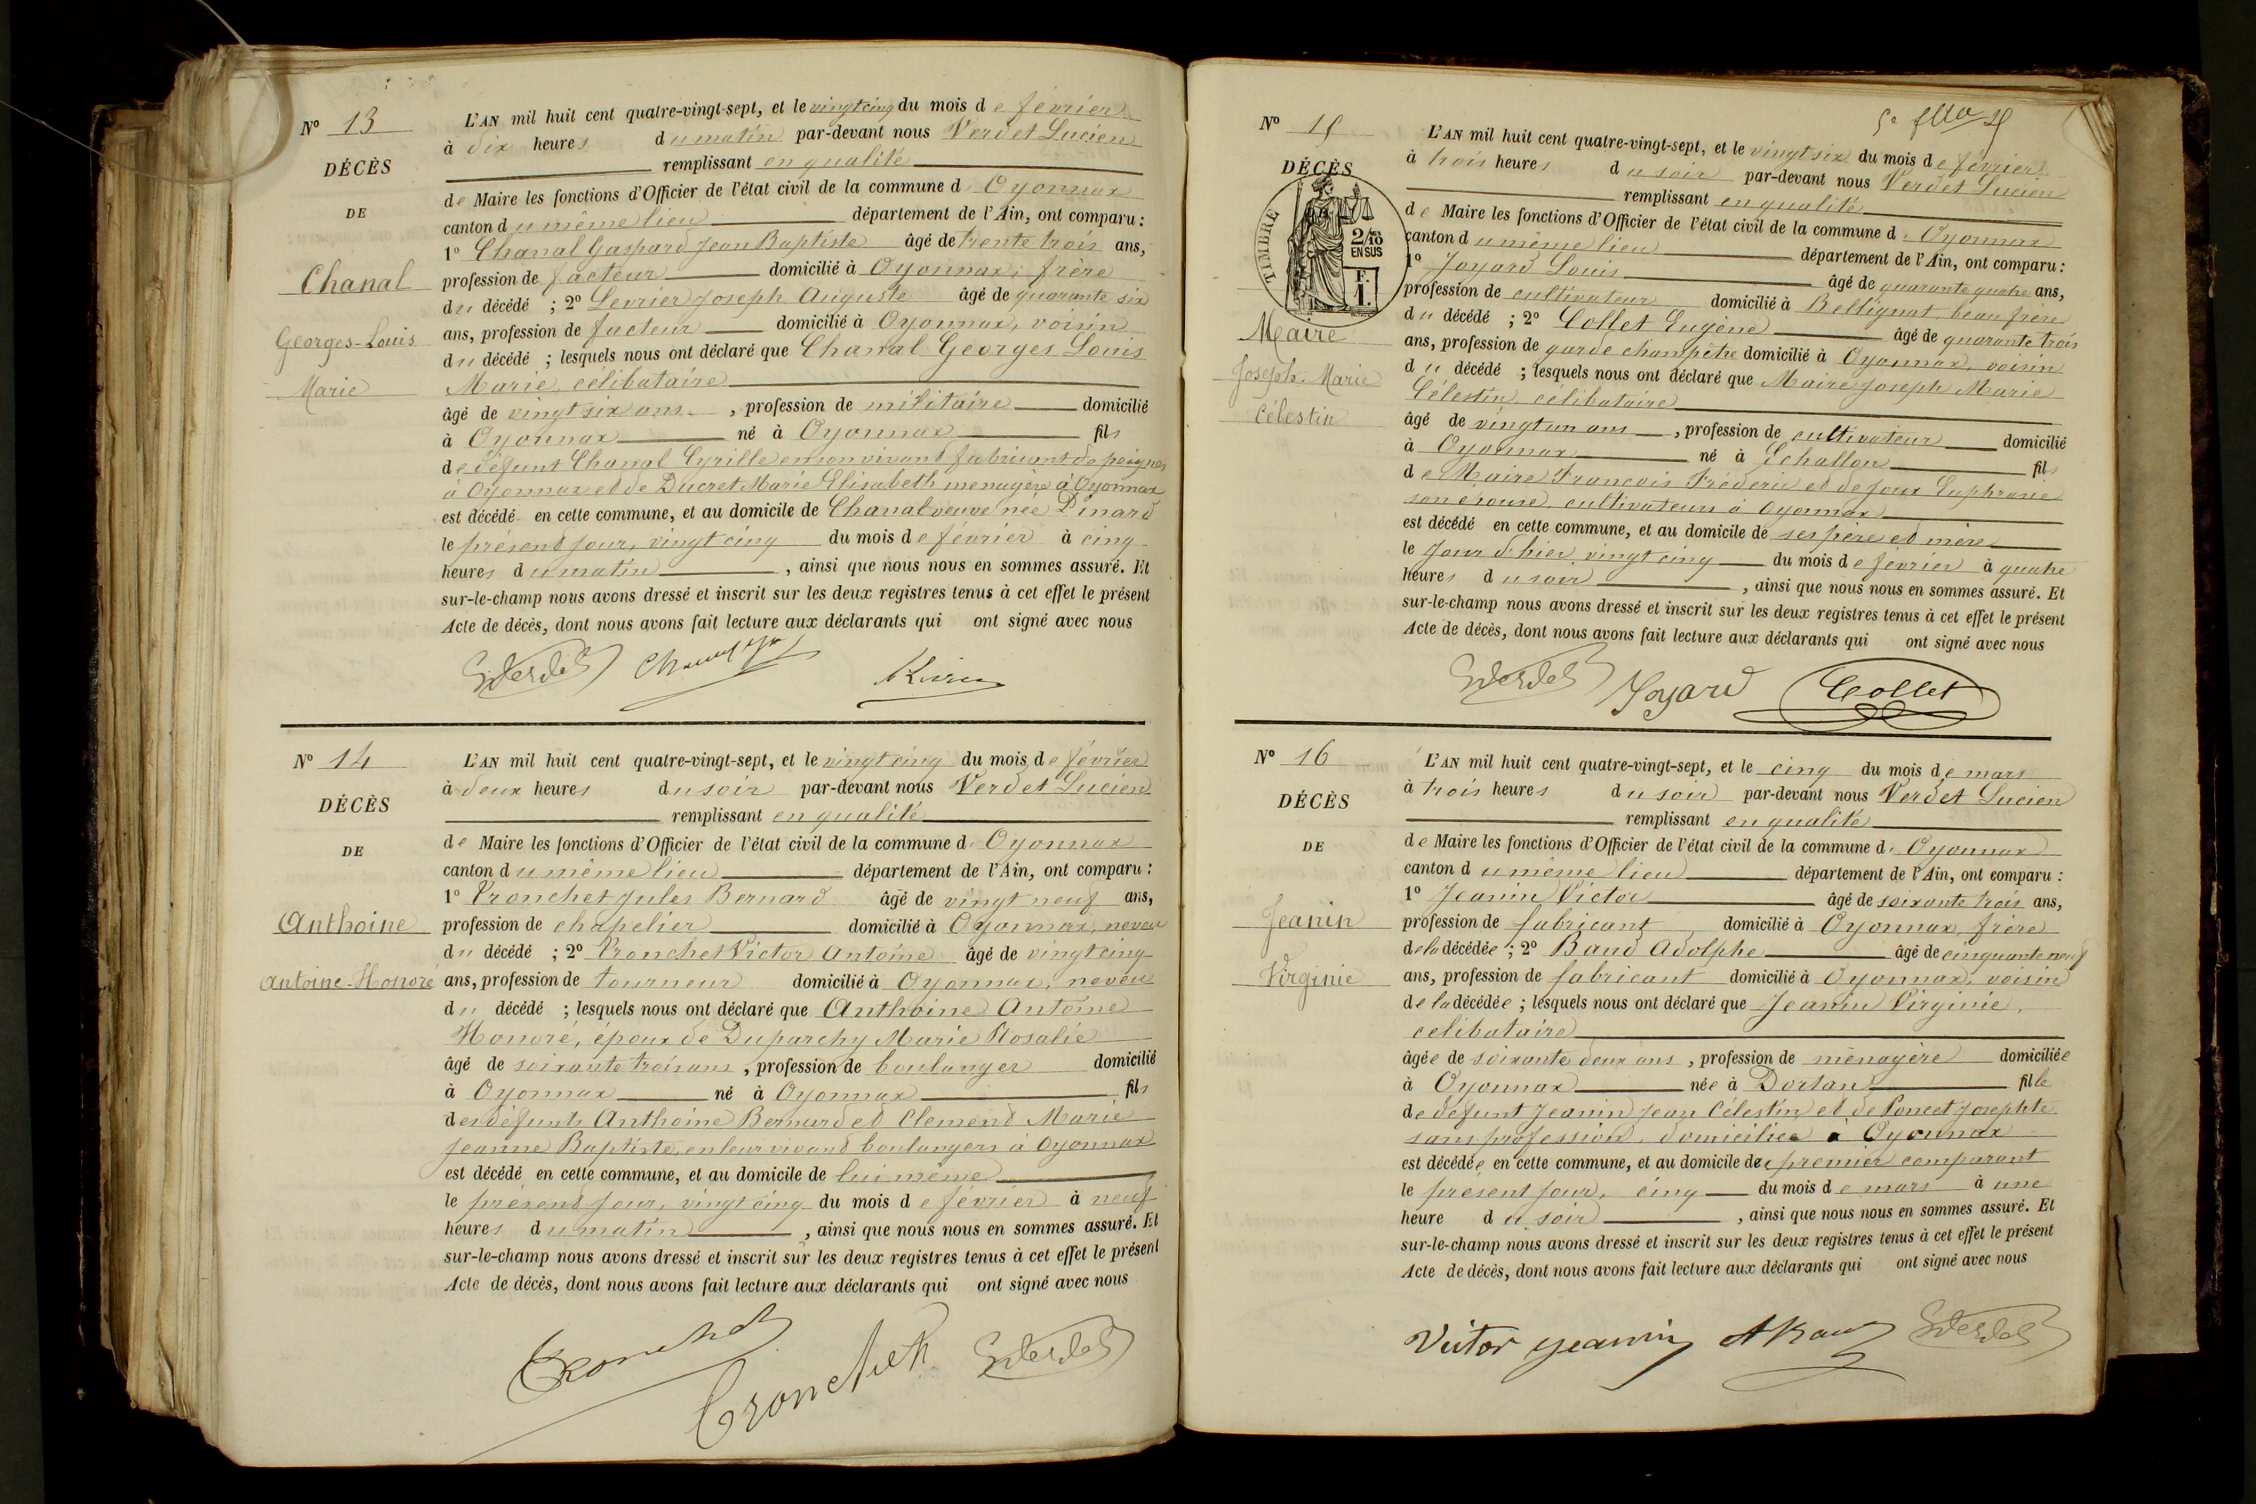 N° 13
DÉCÈS
DE
Chanal
Georges-Louis
Marie
L'AN mil huit cent quatre-vingt-sept, et le vingt cinq du mois de février
à dix heures du matin par-devant nous Verdet Lucien
remplissant en qualité
de Maire les fonctions d'Officier de l'état civil de la commune d'Oyonnax
canton du même lieu département de l'Ain, ont comparu :
1° Chanal Gaspard Jean Baptiste âgé de trente trois ans,
profession de facteur domicilié à Oyonnax, frère
du décédé ; 2° Levrier Joseph Auguste âgé de quarante six
ans, profession de facteur domicilié à Oyonnax, voisin
du décédé ; lesquels nous ont déclaré que Chanal Georges Louis
Marie, célibataire
âgé de vingt six ans, profession de militaire domicilié
à Oyonnax né à Oyonnax fils
de défunt Chanal Cyrille en son vivant fabricant de peignes
à Oyonnax et de Ducret Marie Elisabeth ménagère à Oyonnax
est décédé en cette commune, et au domicile de Chanal veuve née Pinard
le présent jour, vingt cinq du mois de février à cinq
heures du matin, ainsi que nous nous en sommes assuré. Et
sur-le-champ nous avons dressé et inscrit sur les deux registres tenus à cet effet le présent
Acte de décès, dont nous avons fait lecture aux déclarants qui ont signé avec nous
N° 14
DÉCÈS
DE
Anthoine
Antoine-Honoré
L'AN mil huit cent quatre-vingt-sept, et le vingt cinq du mois de février
à deux heures du soir par-devant nous Verdet Lucien
remplissant en qualité
de Maire les fonctions d'Officier de l'état civil de la commune d'Oyonnax
canton du même lieu département de l'Ain, ont comparu :
1° Tronchet Jules Bernard âgé de vingt neuf ans,
profession de chapelier domicilié à Oyonnax, neveu
du décédé ; 2° Tronchet Victor Antoine âgé de vingt cinq
ans, profession de tourneur domicilié à Oyonnax, neveu
du décédé ; lesquels nous ont déclaré que Anthoine Antoine
Honoré, époux de Duparchy Marie Rosalie
âgé de soixante trois ans, profession de boulanger domicilié
à Oyonnax né à Oyonnax fils
des défunts Anthoine Bernard et Clement Marie
Jeanne Baptiste, en leur vivant boulangers à Oyonnax
est décédé en cette commune, et au domicile de lui même
le présent jour, vingt cinq du mois de février à neuf
heures du matin, ainsi que nous nous en sommes assuré. Et
sur-le-champ nous avons dressé et inscrit sur les deux registres tenus à cet effet le présent
Acte de décès, dont nous avons fait lecture aux déclarants qui ont signé avec nous
Tronchet
Tronchet
N° 15
DÉCÈS
TIMBRE
2/10
EN SUS
F.
1.
Maire
Joseph-Marie
Célestin
L'AN mil huit cent quatre-vingt-sept, et le vingt six du mois de février
à trois heures du soir par-devant nous Verdet Lucien
remplissant en qualité
de Maire les fonctions d'Officier de l'état civil de la commune d'Oyonnax
canton du même lieu département de l'Ain, ont comparu :
1° Joyard Louis âgé de quarante quatre ans,
profession de cultivateur domicilié à Bellignat, beau frère
du décédé ; 2° Collet Eugène âgé de quarante trois
ans, profession de garde champêtre domicilié à Oyonnax, voisin
du décédé ; lesquels nous ont déclaré que Maire Joseph Marie
Célestin célibataire
âgé de vingt un ans, profession de cultivateur domicilié
à Oyonnax né à Echallon fils
de Maire François Fréderic et de Joux Euphrasie
son épouse, cultivateurs à Oyonnax
est décédé en cette commune, et au domicile de ses père et mère
le jour d'hier vingt cinq du mois de février à quatre
heures du soir, ainsi que nous nous en sommes assuré. Et
sur-le-champ nous avons dressé et inscrit sur les deux registres tenus à cet effet le présent
Acte de décès, dont nous avons fait lecture aux déclarants qui ont signé avec nous
Joyard Collet
N° 16
DÉCÈS
DE
Jeanin
Virginie
L'AN mil huit cent quatre-vingt-sept, et le cinq du mois de mars
à trois heures du soir par-devant nous Verdet Lucien
remplissant en qualité
de Maire les fonctions d'Officier de l'état civil de la commune d'Oyonnax
canton du même lieu département de l'Ain, ont comparu :
1° Jeanin Victor âgé de soixante trois ans,
profession de fabricant domicilié à Oyonnax, frère
de la décédée ; 2° Baud Adolphe âgé de cinquante neuf
ans, profession de fabricant domicilié à Oyonnax, voisin
de la décédée ; lesquels nous ont déclaré que Jeanin Virginie,
célibataire
âgée de soixante deux ans, profession de ménagère domiciliée
à Oyonnax née à Dortan fille
de défunt Jeanin Jean Célestin et de Poncet Josephte
sans profession, domiciliée à Oyonnax
est décédée en cette commune, et au domicile du premier comparant
le présent jour, cinq du mois de mars à une
heure du soir, ainsi que nous nous en sommes assuré. Et
sur-le-champ nous avons dressé et inscrit sur les deux registres tenus à cet effet le présent
Acte de décès, dont nous avons fait lecture aux déclarants qui ont signé avec nous
Victor Jeanin A Baud